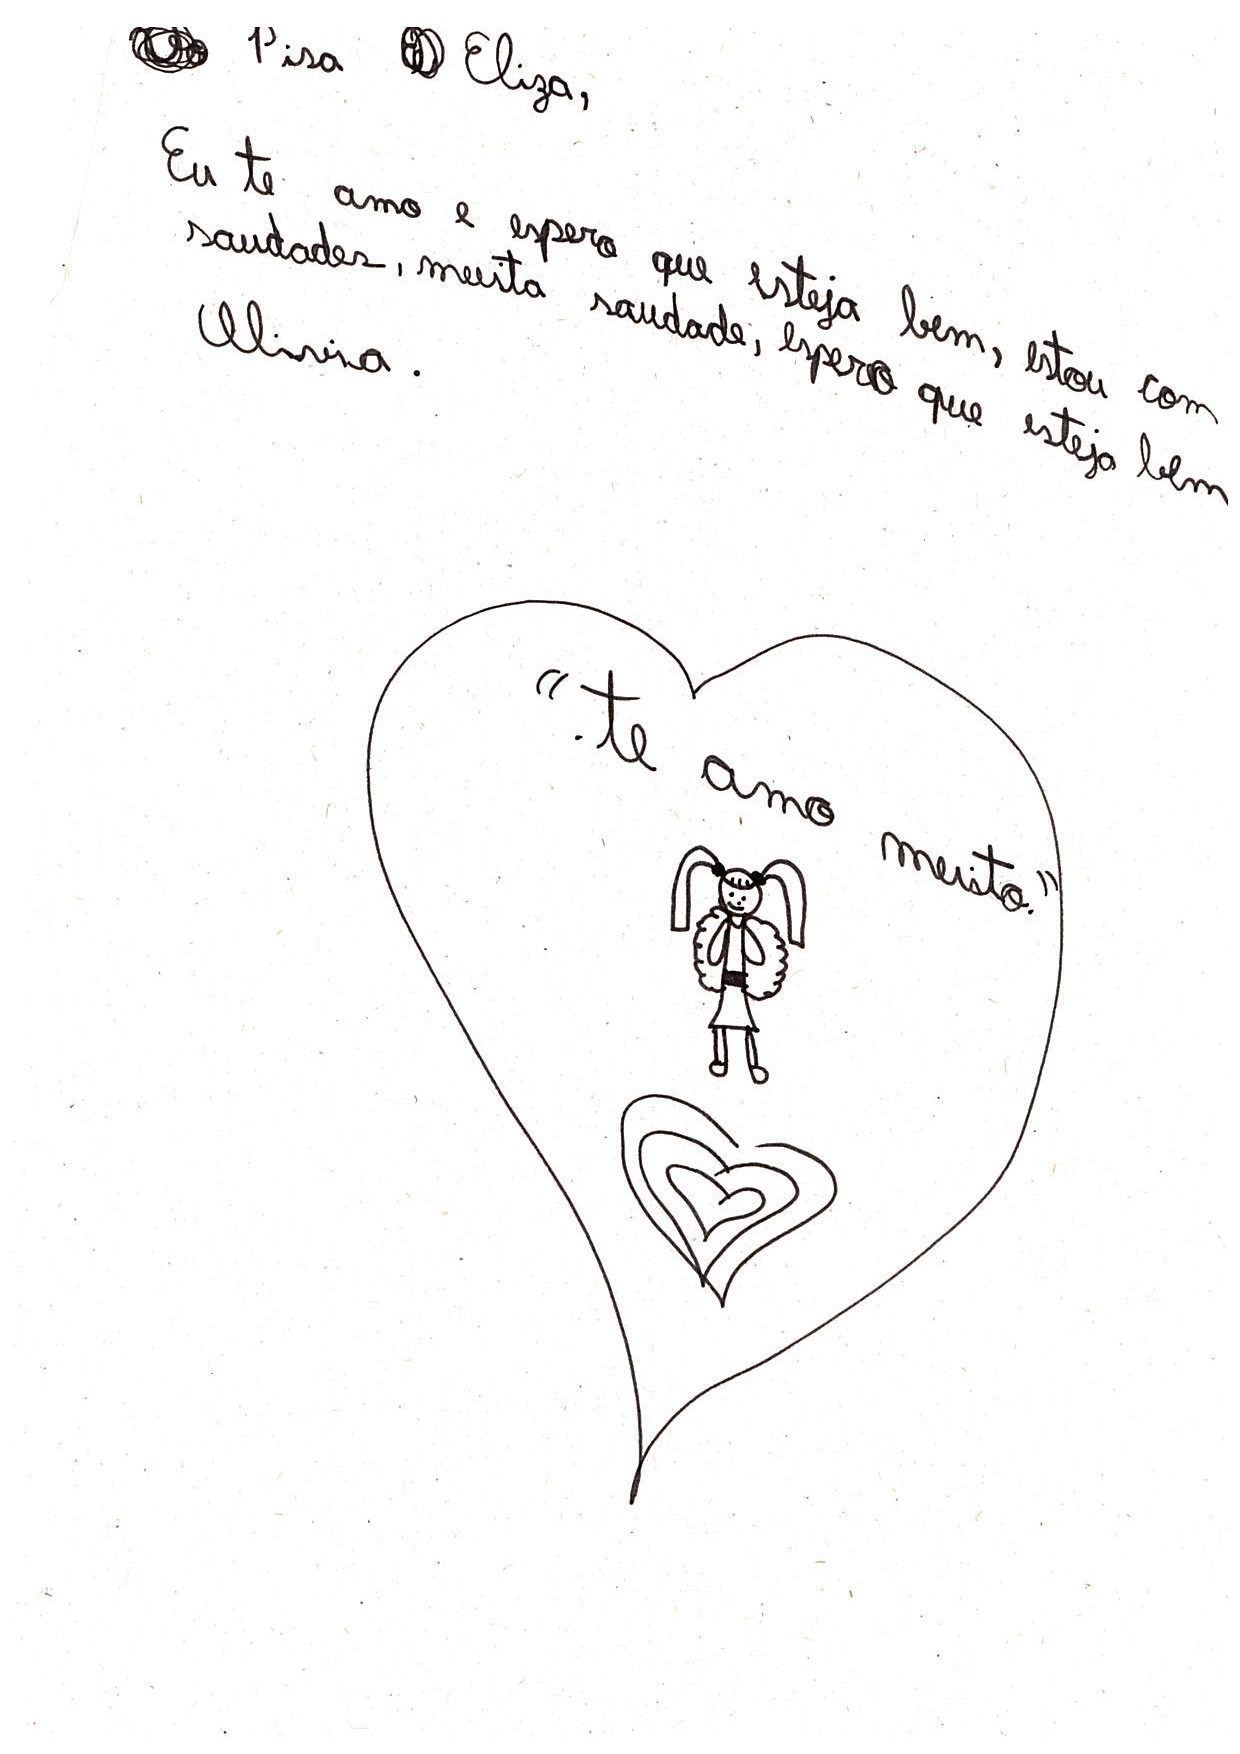 Pisa Eliza,
Eu te amo e espero que esteja bem, estou com
saudades, muita saudade, espero que esteja bem
"te amo muito."